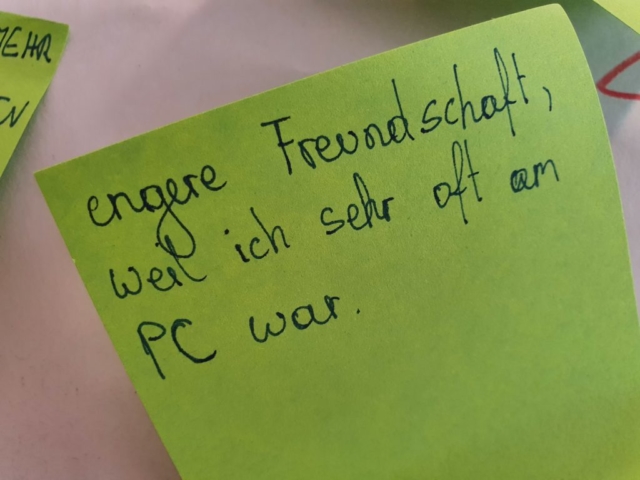 MEHR
EN
engere Freundschaft,
weil ich sehr oft am
PC war.